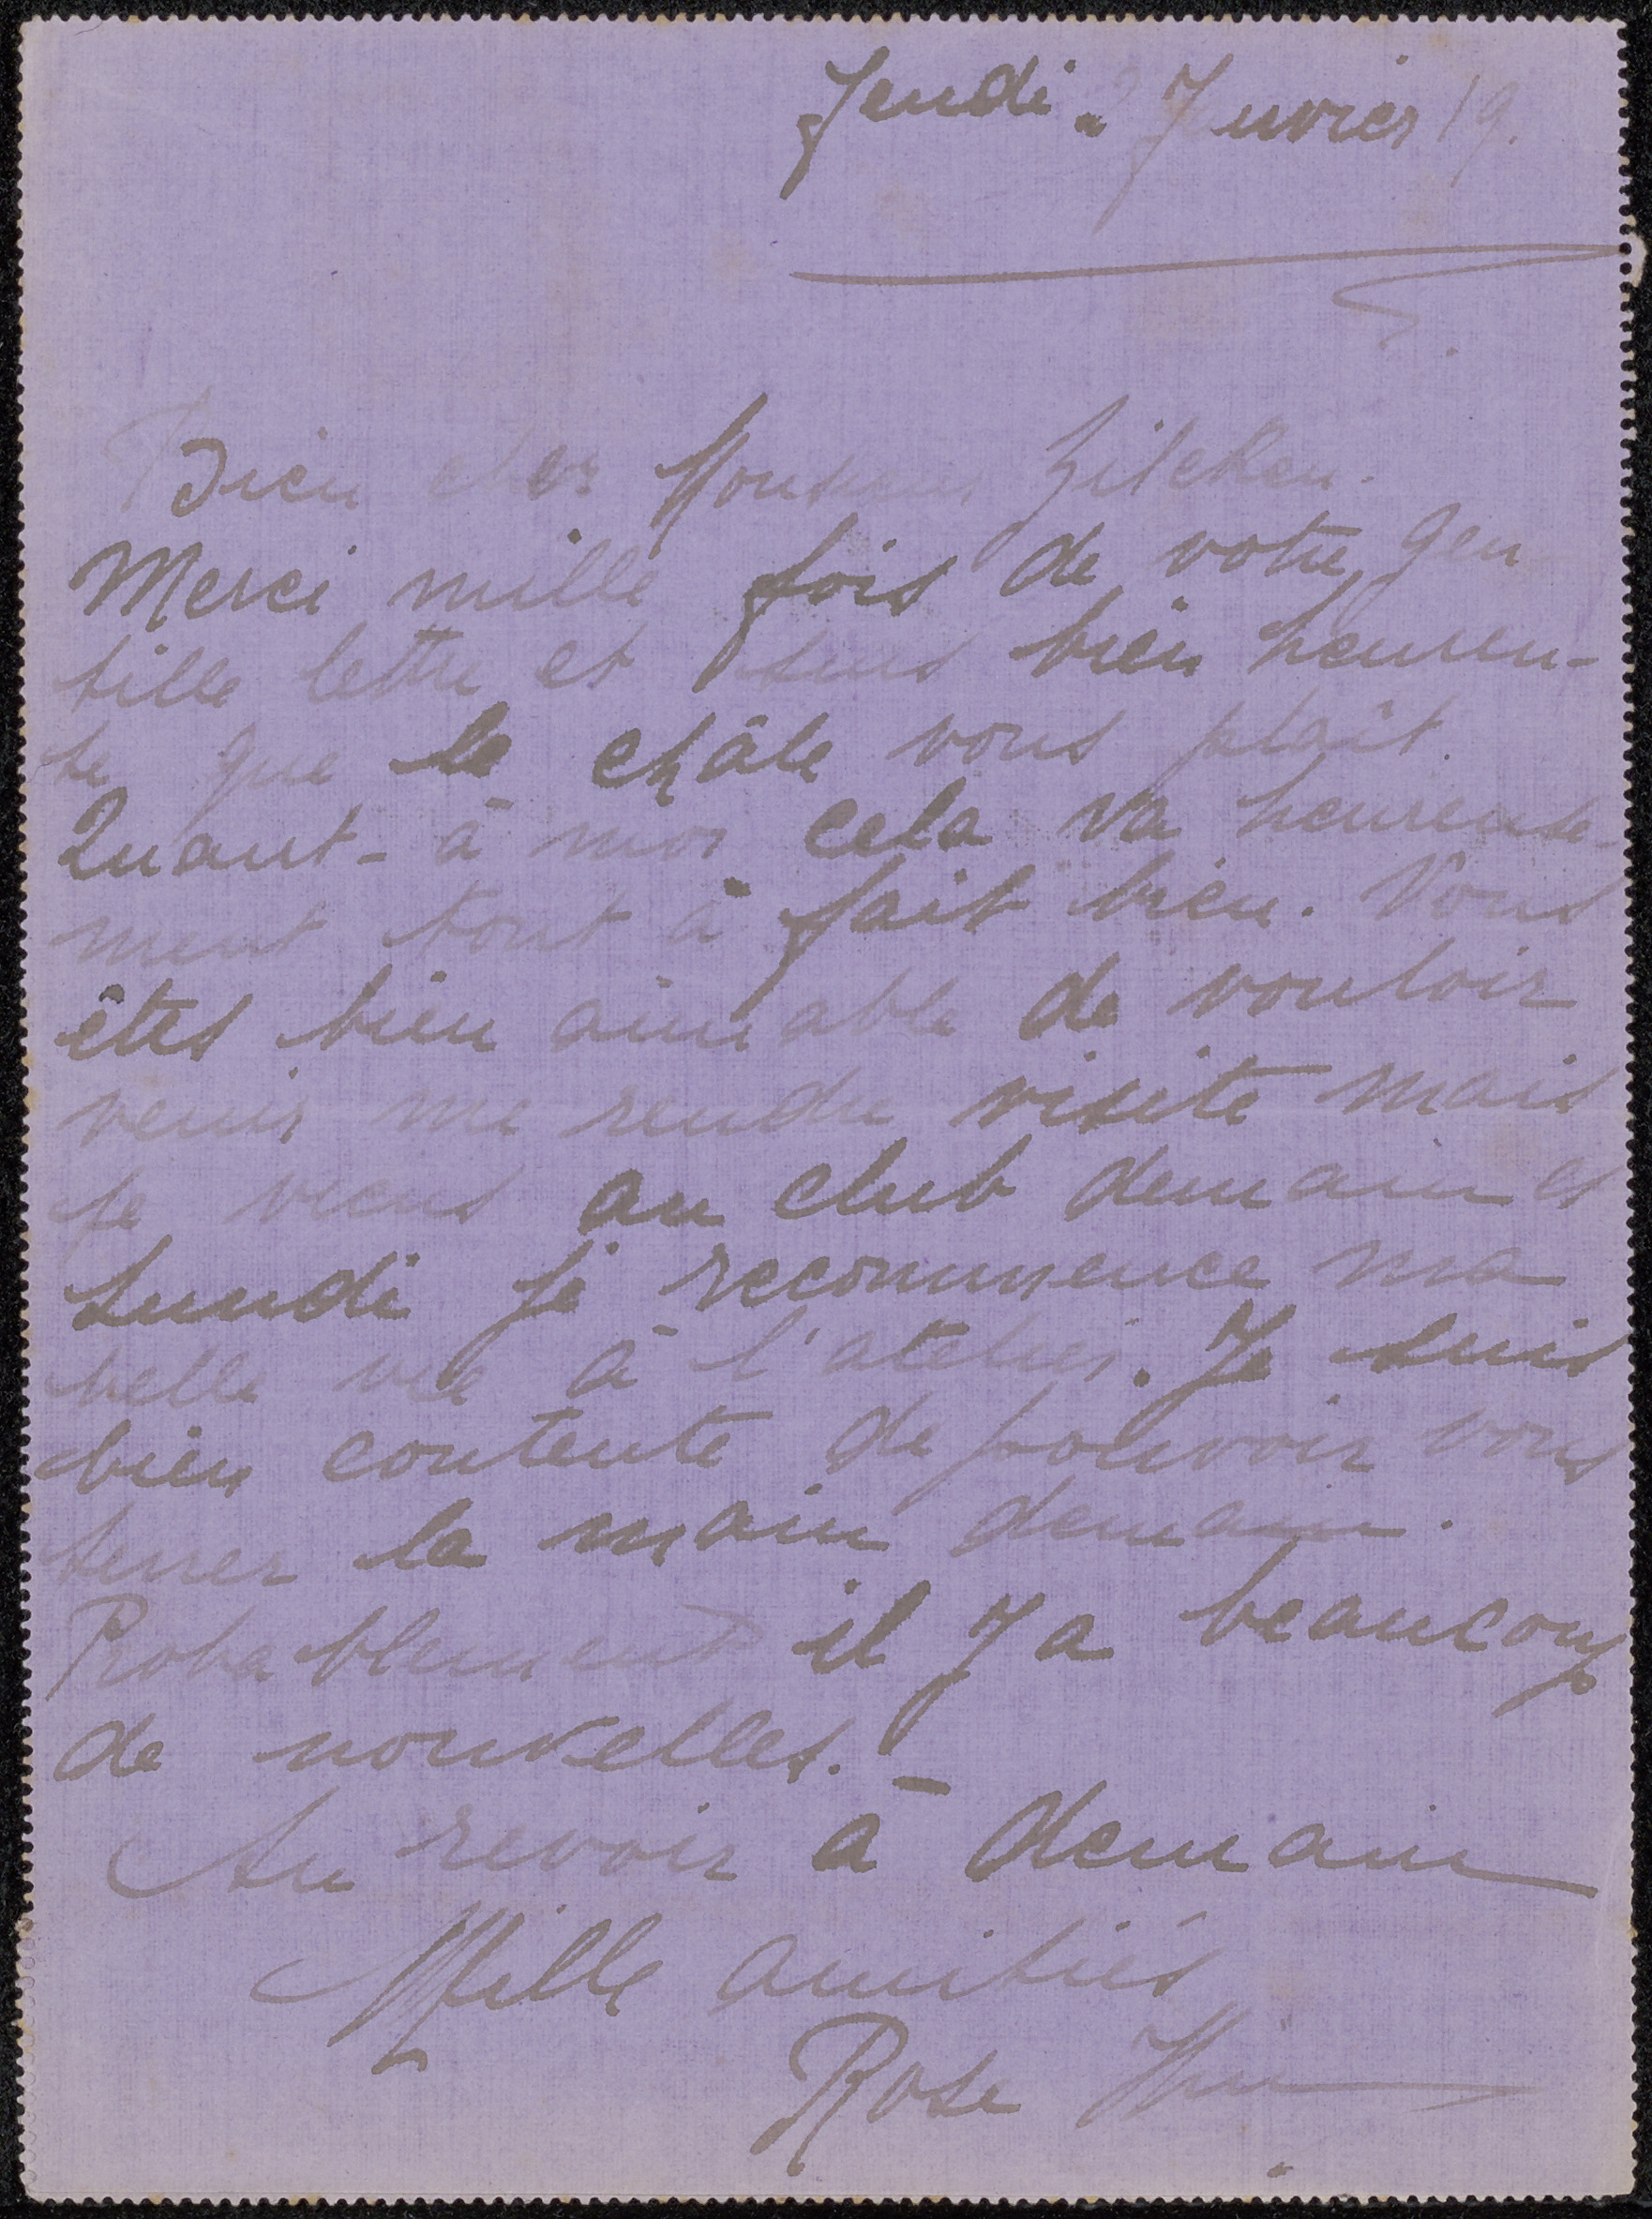 Jeudi. 2 Janvier 19.
Bien cher Monsieur Zilcken.
Merci mille fois de votre gen
tille lettre et suis bien heureu-
se que le châle vous plaît.
Quant-à moi cela va heureuse-
ment tout à fait bien. Vous
êtes bien aimable de vouloir
venir me rendre visite mais
je viens au club demain et
Lundi je recommence ma
belle vie à l'atelier. Je suis
bien contente de pouvoir vous
serrer la main demain.
Probablement il y a beaucoup
de nouvelles. –
Au revoir à demain
Mille amitiés
Rose